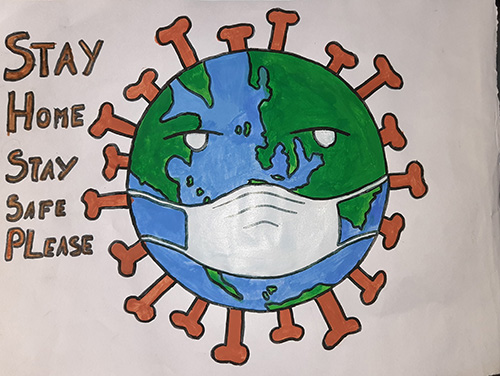 STAY
HOME
STAY
SAFE
PLEASE